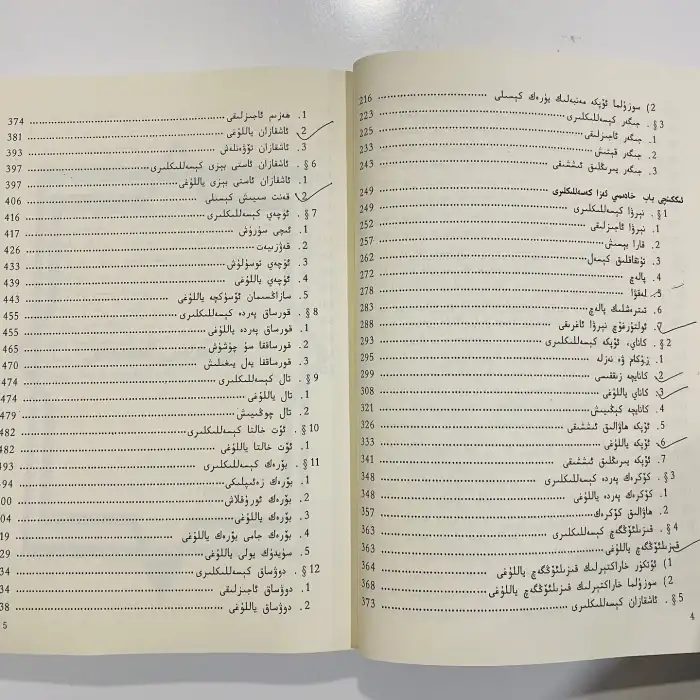 2) سوزۇلما ئۆپكە مەنبەلىك يۈرەك كېسىلى ........ 216
§ 3 . جىگەر كېسەللىكلىرى ........ 223
1. جىگەر ئاجىزلىقى ........ 225
2. جىگەر قېتىش ........ 233
3. جىگەر يىرىڭلىق ئىششىقى ........ 243
ئىككىنچى باب خادىمىي ئەزا كەسەللىكلىرى ........ 249
§ 1 . نېرۋا كېسەللىكلىرى ........ 249
1. نېرۋا ئاجىزلىقى ........ 252
2. قارا بېسىش ........ 257
3. تۇتقاقلىق كېسەل ........ 262
4. پالەچ ........ 272
5. لەقۋا ........ 278
6. تىترەشلىك پالەچ ........ 283
7. ئولتۇرغۇچ نېرۋا ئاغرىقى ........ 288
§ 2 . كاناي، ئۆپكە كېسەللىكلىرى ........ 293
1. زۇكام ۋە نەزلە ........ 295
2. كانايچە زىققىسى ........ 299
3. كاناي ياللۇغى ........ 308
4. كانايچە كېڭىيىش ........ 321
5. ئۆپكە ھاۋالىق ئىششىقى ........ 326
6. ئۆپكە ياللۇغى ........ 333
7. ئۆپكە يىرىڭلىق ئىششىقى ........ 341
§ 3 . كۆكرەك پەردە كېسەللىكلىرى ........ 348
1. كۆكرەك پەردە ياللۇغى ........ 348
2. ھاۋالىق كۆكرەك ........ 357
§ 4 . قىزىلئۆڭگەچ كېسەللىكلىرى ........ 363
قىزىلئۆڭگەچ ياللۇغى ........ 363
1) ئۆتكۈر خاراكتېرلىك قىزىلئۆڭگەچ ياللۇغى ........ 364
2) سوزۇلما خاراكتېرلىك قىزىلئۆڭگەچ ياللۇغى ........ 368
§ 5 . ئاشقازان كېسەللىكلىرى ........ 373
4
1. ھەزىم ئاجىزلىقى ........ 374
2. ئاشقازان ياللۇغى ........ 381
3. ئاشقازان تۆۋەنلەش ........ 393
§ 6 . ئاشقازان ئاستى بېزى كېسەللىكلىرى ........ 397
1. ئاشقازان ئاستى بېزى ياللۇغى ........ 397
2. قەنت سىيىش كېسىلى ........ 406
§ 7 . ئۈچەي كېسەللىكلىرى ........ 416
1. ئىچى سۈرۈش ........ 417
2. قەۋزىيەت ........ 426
3. ئۈچەي توسۇلۇش ........ 433
4. ئۈچەي ياللۇغى ........ 439
5. سازاڭسىمان ئۆسۈكچە ياللۇغى ........ 443
§ 8 . قورساق پەردە كېسەللىكلىرى ........ 455
1. قورساق پەردە ياللۇغى ........ 455
2. قورساققا سۇ چۈشۈش ........ 465
3. قورساققا يەل يىغىلىش ........ 470
§ 9 . تال كېسەللىكلىرى ........ 474
1. تال ياللۇغى ........ 474
2. تال چوڭىيىش ........ 479
§ 10 . ئۆت خالتا كېسەللىكلىرى ........ 482
1. ئۆت خالتا ياللۇغى ........ 482
§ 11 . بۆرەك كېسەللىكلىرى ........ 493
1. بۆرەك زەئىپلىكى ........ 94
2. بۆرەك ئورۇقلاش ........ 00
3. بۆرەك ياللۇغى ........ 04
4. بۆرەك جامى ياللۇغى ........ 19
5. سۈيدۈك يولى ياللۇغى ........ 29
§ 12 . دوۋساق كېسەللىكلىرى ........ 34
1. دوۋساق ئاجىزلىقى ........ 34
2. دوۋساق ياللۇغى ........ 38
5